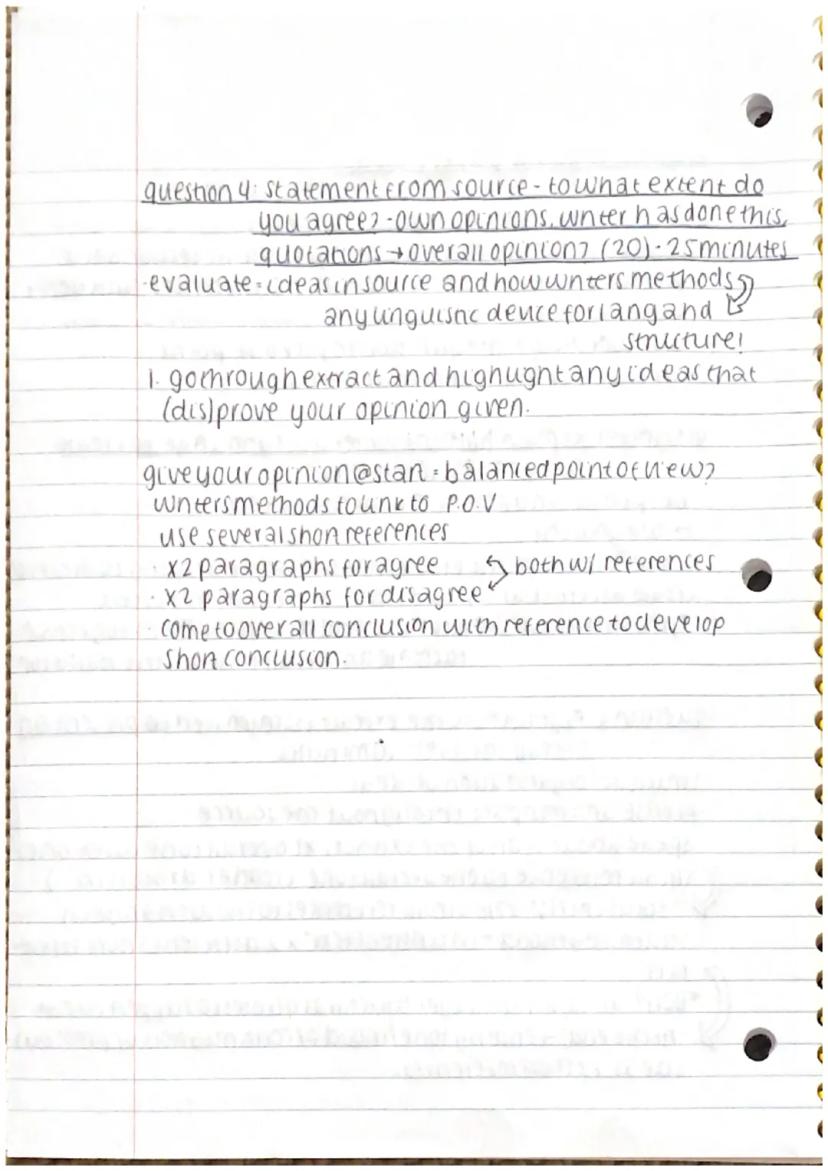 question 4: statement from source - to what extent do
you agree? - own opinions, writer has done this,
quotations → overall opinion? (20) - 25 minutes
· evaluate = ideas in source and how writers methods
any linguistic device for lang and
structure!
1. go through extract and highlight any ideas that
(dis)prove your opinion given.
give your opinion @ start = balanced point of view?
writers methods to link to P.O.V
use several short references
· x2 paragraphs for agree both w/ references
· x2 paragraphs for disagree
come to overall conclusion with reference to develop
short conclusion.